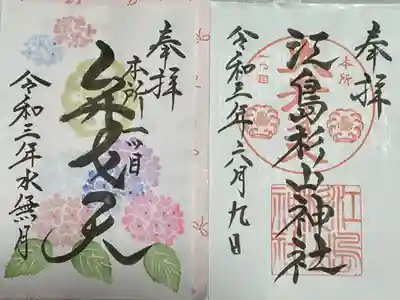 奉拝
本所一ツ目
弁才天
令和三年水無月
奉拝
本所
一ツ目
江島杉山神社
令和三年六月九日